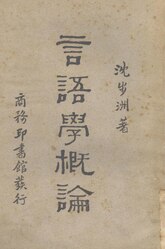 沈步洲著
言語學概論
商務印書館發行